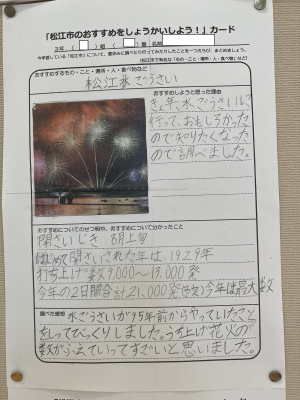 「松江市のおすすめをしょうかいしよう！」カード
3年（ ）組（ ）番 名前
おすすめするもの・こと・場所・人・食べ物など
松江水ごうさい
おすすめしようと思った理由
きょ年、水ごうさいに
行って、おもしろかった
ので知りたくなった
ので調べました。
おすすめについてのせつ明や、おすすめについて分かったこと
開さいじき 8月上旬
初めて開さいされた年は、1929年
打ち上げ数9,000〜13,000発
今年の2日間合計21,000発(予定)今年は最大数
調べた感想
水ごうさいが95年前からやっていたこと
をしってびっくりしました。うち上げ花火の
数がふえていってすごいと思いました。